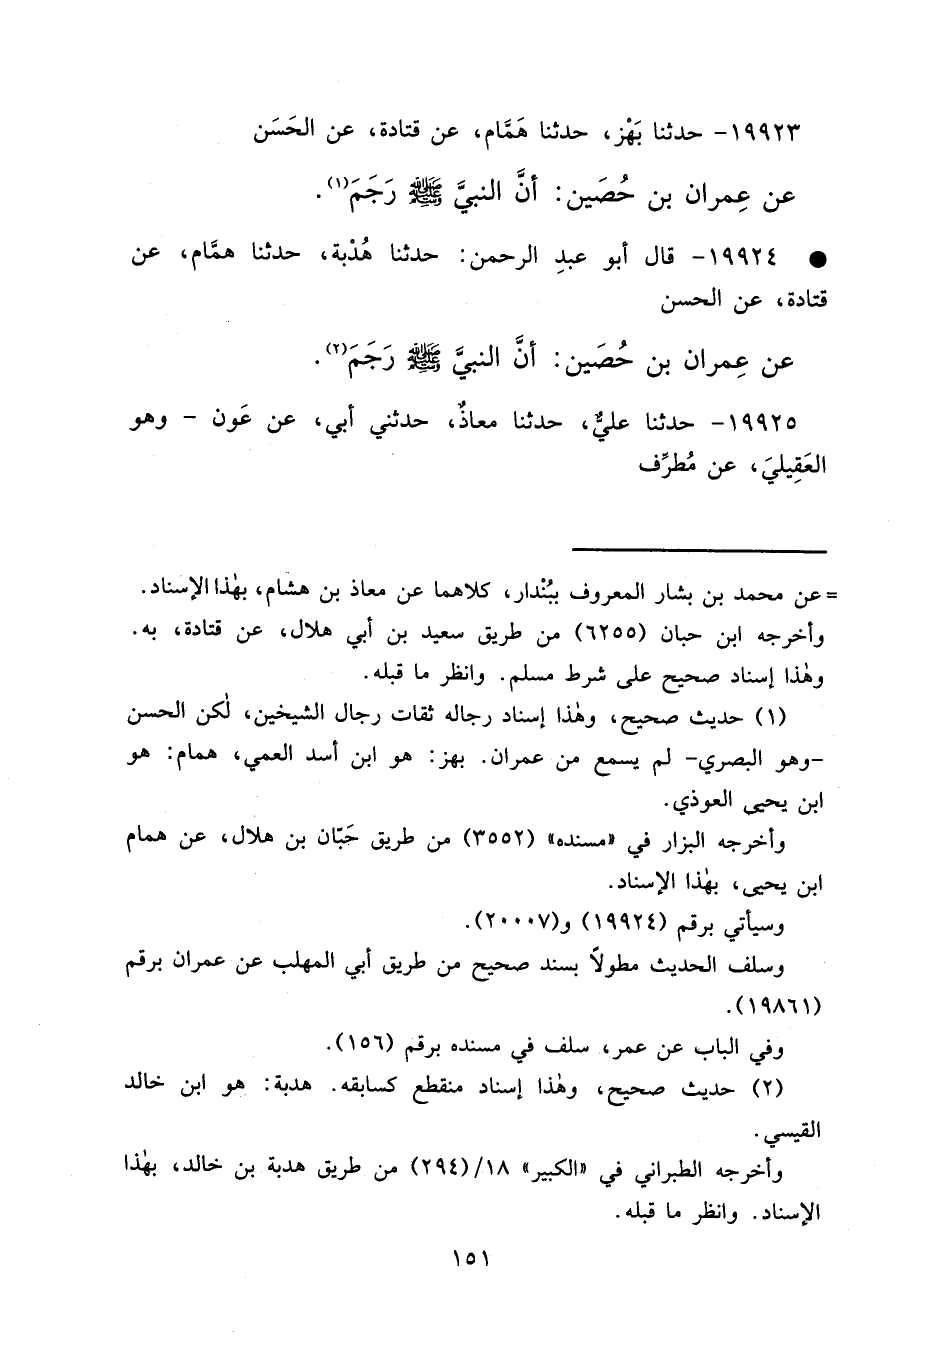 ١٩٩٢٣- حدثنا بَهْز، حدثنا هَمَّام، عن قتادة، عن الحَسَن
عن عِمران بن حُصَين: أنَّ النبيَّ ﷺ رَجَمَ(١).
● ١٩٩٢٤- قال أبو عبدِ الرحمن: حدثنا هُدْبة، حدثنا همَّام، عن
قتادة، عن الحسن
عن عِمران بن حُصَين: أنَّ النبيَّ ﷺ رَجَمَ(٢).
١٩٩٢٥- حدثنا عليٌّ، حدثنا معاذٌ، حدثني أبي، عن عَون - وهو
العَقِيليَ، عن مُطرِّف
= عن محمد بن بشار المعروف ببُنْدار، كلاهما عن معاذ بن هشام، بهٰذا الإسناد.
وأخرجه ابن حبان (٦٢٥٥) من طريق سعيد بن أبي هلال، عن قتادة، به.
وهٰذا إسناد صحيح على شرط مسلم. وانظر ما قبله.
(١) حديث صحيح، وهٰذا إسناد رجاله ثقات رجال الشيخين، لٰكن الحسن
-وهو البصري- لم يسمع من عمران. بهز: هو ابن أسد العمي، همام: هو
ابن يحيى العوذي.
وأخرجه البزار في «مسنده» (٣٥٥٢) من طريق حَبّان بن هلال، عن همام
ابن يحيى، بهٰذا الإسناد.
وسيأتي برقم (١٩٩٢٤) و(٢٠٠٠٧).
وسلف الحديث مطولاً بسند صحيح من طريق أبي المهلب عن عمران برقم
(١٩٨٦١).
وفي الباب عن عمر، سلف في مسنده برقم (١٥٦).
(٢) حديث صحيح، وهٰذا إسناد منقطع كسابقه. هدبة: هو ابن خالد
القيسي.
وأخرجه الطبراني في «الكبير» ١٨/(٢٩٤) من طريق هدبة بن خالد، بهٰذا
الإسناد. وانظر ما قبله.
١٥١